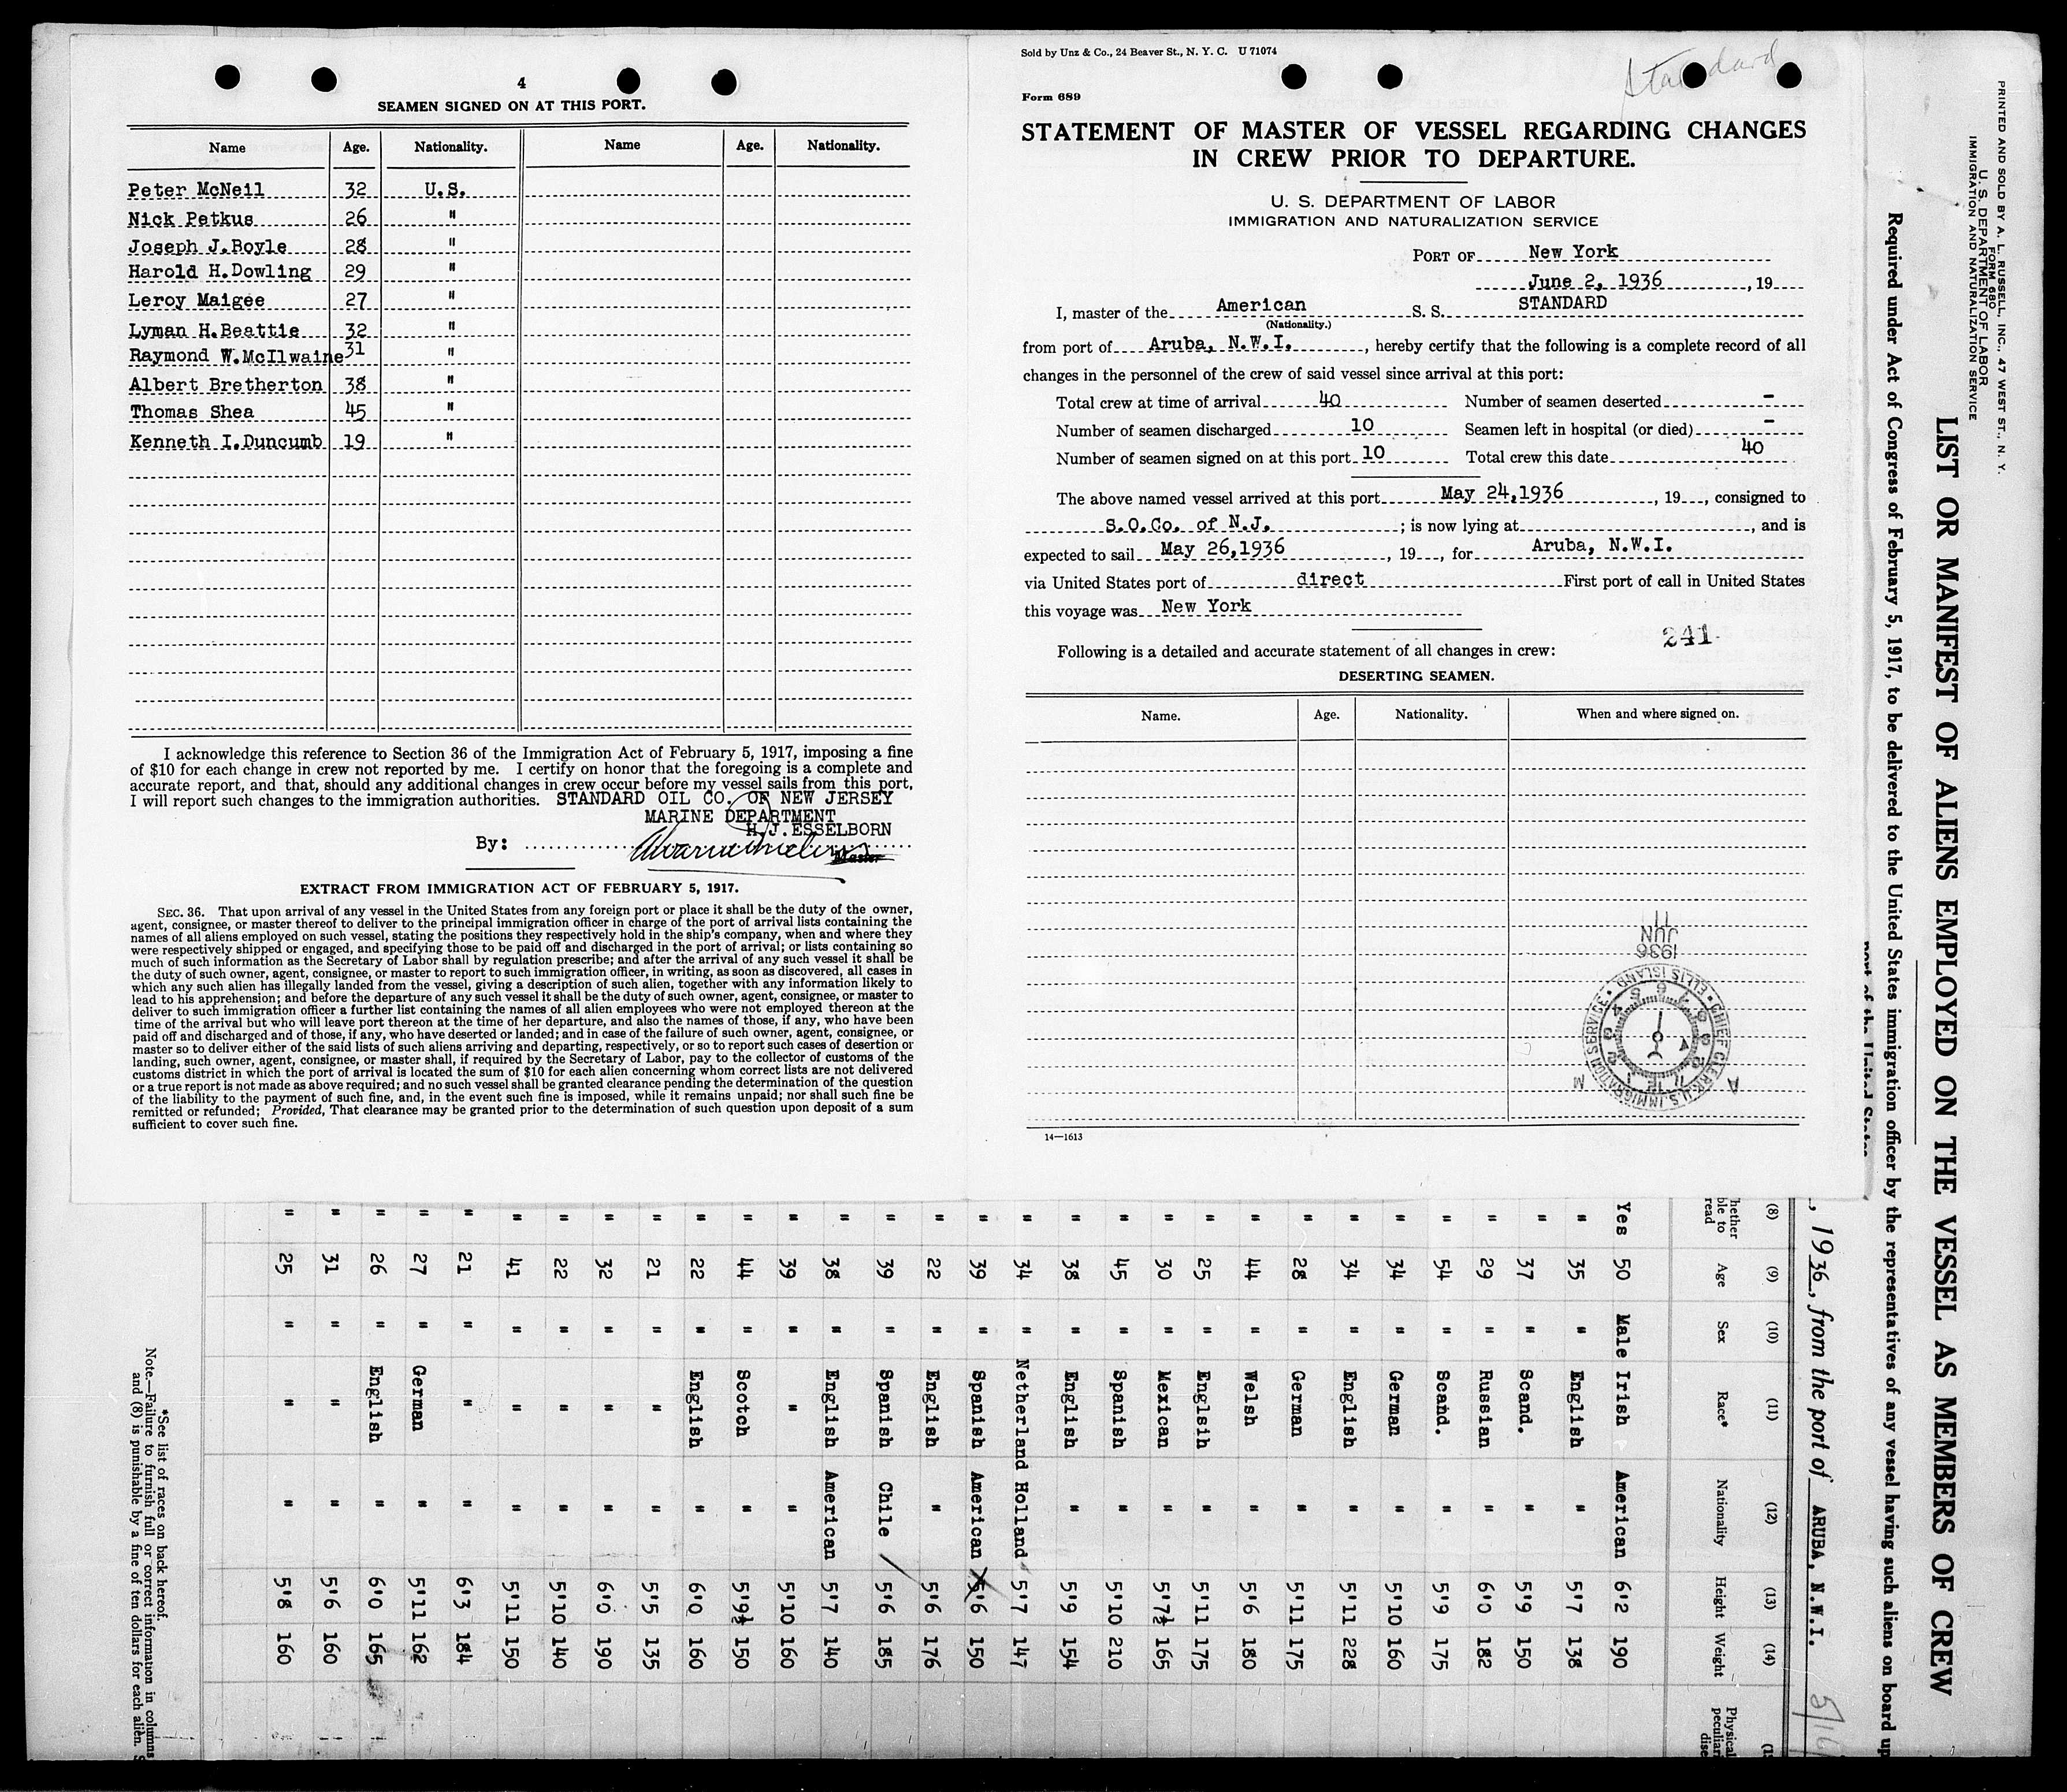 4
SEAMEN SIGNED ON AT THIS PORT.
Name Age. Nationality. Name Age. Nationality.
Peter McNeil 32 U.S.
Nick Petkus 26 "
Joseph J.Boyle 28 "
Harold H.Dowling 29 "
Leroy Maigee 27 "
Lyman H.Beattie 32 "
Raymond W.McIlwaine 31 "
Albert Bretherton 38 "
Thomas Shea 45 "
Kenneth I.Duncumb 19 "
I acknowledge this reference to Section 36 of the Immigration Act of February 5, 1917, imposing a fine
of $10 for each change in crew not reported by me. I certify on honor that the foregoing is a complete and
accurate report, and that, should any additional changes in crew occur before my vessel sails from this port,
I will report such changes to the immigration authorities. STANDARD OIL CO. OF NEW JERSEY
MARINE DEPARTMENT
H.J.ESSELBORN
By:
Master
EXTRACT FROM IMMIGRATION ACT OF FEBRUARY 5, 1917.
SEC. 36. That upon arrival of any vessel in the United States from any foreign port or place it shall be the duty of the owner,
agent, consignee, or master thereof to deliver to the principal immigration officer in charge of the port of arrival lists containing the
names of all aliens employed on such vessel, stating the positions they respectively hold in the ship's company, when and where they
were respectively shipped or engaged, and specifying those to be paid off and discharged in the port of arrival; or lists containing so
much of such information as the Secretary of Labor shall by regulation prescribe; and after the arrival of any such vessel it shall be
the duty of such owner, agent, consignee, or master to report to such immigration officer, in writing, as soon as discovered, all cases in
which any such alien has illegally landed from the vessel, giving a description of such alien, together with any information likely to
lead to his apprehension; and before the departure of any such vessel it shall be the duty of such owner, agent, consignee, or master to
deliver to such immigration officer a further list containing the names of all alien employees who were not employed thereon at the
time of the arrival but who will leave port thereon at the time of her departure, and also the names of those, if any, who have been
paid off and discharged and of those, if any, who have deserted or landed; and in case of the failure of such owner, agent, consignee, or
master so to deliver either of the said lists of such aliens arriving and departing, respectively, or so to report such cases of desertion or
landing, such owner, agent, consignee, or master shall, if required by the Secretary of Labor, pay to the collector of customs of the
customs district in which the port of arrival is located the sum of $10 for each alien concerning whom correct lists are not delivered
or a true report is not made as above required; and no such vessel shall be granted clearance pending the determination of the question
of the liability to the payment of such fine, and, in the event such fine is imposed, while it remains unpaid; nor shall such fine be
remitted or refunded; Provided, That clearance may be granted prior to the determination of such question upon deposit of a sum
sufficient to cover such fine.
Sold by Unz & Co., 24 Beaver St., N. Y. C. U 71074
Standard
Form 689
STATEMENT OF MASTER OF VESSEL REGARDING CHANGES
IN CREW PRIOR TO DEPARTURE.
U. S. DEPARTMENT OF LABOR
IMMIGRATION AND NATURALIZATION SERVICE
PORT OF New York
June 2, 1936, 19
I, master of the American S. S. STANDARD
(Nationality.)
from port of Aruba, N.W.I., hereby certify that the following is a complete record of all
changes in the personnel of the crew of said vessel since arrival at this port:
Total crew at time of arrival 40 Number of seamen deserted -
Number of seamen discharged 10 Seamen left in hospital (or died) -
Number of seamen signed on at this port 10 Total crew this date 40
The above named vessel arrived at this port May 24,1936, 19, consigned to
S.O.Co. of N.J. ; is now lying at , and is
expected to sail May 26,1936, 19, for Aruba, N.W.I.
via United States port of direct First port of call in United States
this voyage was New York
241
Following is a detailed and accurate statement of all changes in crew:
DESERTING SEAMEN.
Name. Age. Nationality. When and where signed on.
1936
JUN
11
CHIEF CLERK U.S. IMMIGRATION SERVICE ELLIS ISLAND
A M
14—1613
PRINTED AND SOLD BY A. L. RUSSELL, INC., 47 WEST ST., N. Y.
FORM 680
U. S. DEPARTMENT OF LABOR
IMMIGRATION AND NATURALIZATION SERVICE
LIST OR MANIFEST OF ALIENS EMPLOYED ON THE VESSEL AS MEMBERS OF CREW
Required under Act of Congress of February 5, 1917, to be delivered to the United States immigration officer by the representatives of any vessel having such aliens on board up
port of the United States
, 1936, from the port of ARUBA, N.W.I.
(8) (9) (10) (11) (12) (13) (14)
hether ble to read Age Sex Race* Nationality Height Weight Physical peculiari dise
Yes 50 Male Irish American 6'2 190
" 35 " English " 5'7 138
" 37 " Scand. " 5'9 150
" 29 " Russian " 6'0 182
" 54 " Scand. " 5'9 175
" 34 " German " 5'10 160
" 34 " English " 5'11 228
" 28 " German " 5'11 175
" 44 " Welsh " 5'6 180
" 25 " Englsih " 5'11 175
" 30 " Mexican " 5'7½ 165
" 45 " Spanish " 5'10 210
" 38 " English " 5'9 154
" 34 " Netherland Holland 5'7 147
" 39 " Spanish American 5'6 150
" 22 " English " 5'6 176
" 39 " Spanish Chile 5'6 185
" 38 " English American 5'7 140
" 39 " " " 5'10 160
" 44 " Scotch " 5'9½ 150
" 22 " English " 6'0 160
" 21 " " " 5'5 135
" 32 " " " 6'0 190
" 22 " " " 5'10 140
" 41 " " " 5'11 150
" 21 " " " 6'3 184
" 27 " German " 5'11 162
" 26 " English " 6'0 165
" 31 " " " 5'6 160
" 25 " " " 5'8 160
*See list of races on back hereof.
Note.—Failure to furnish full or correct information in columns
and (8) is punishable by a fine of ten dollars for each alien.